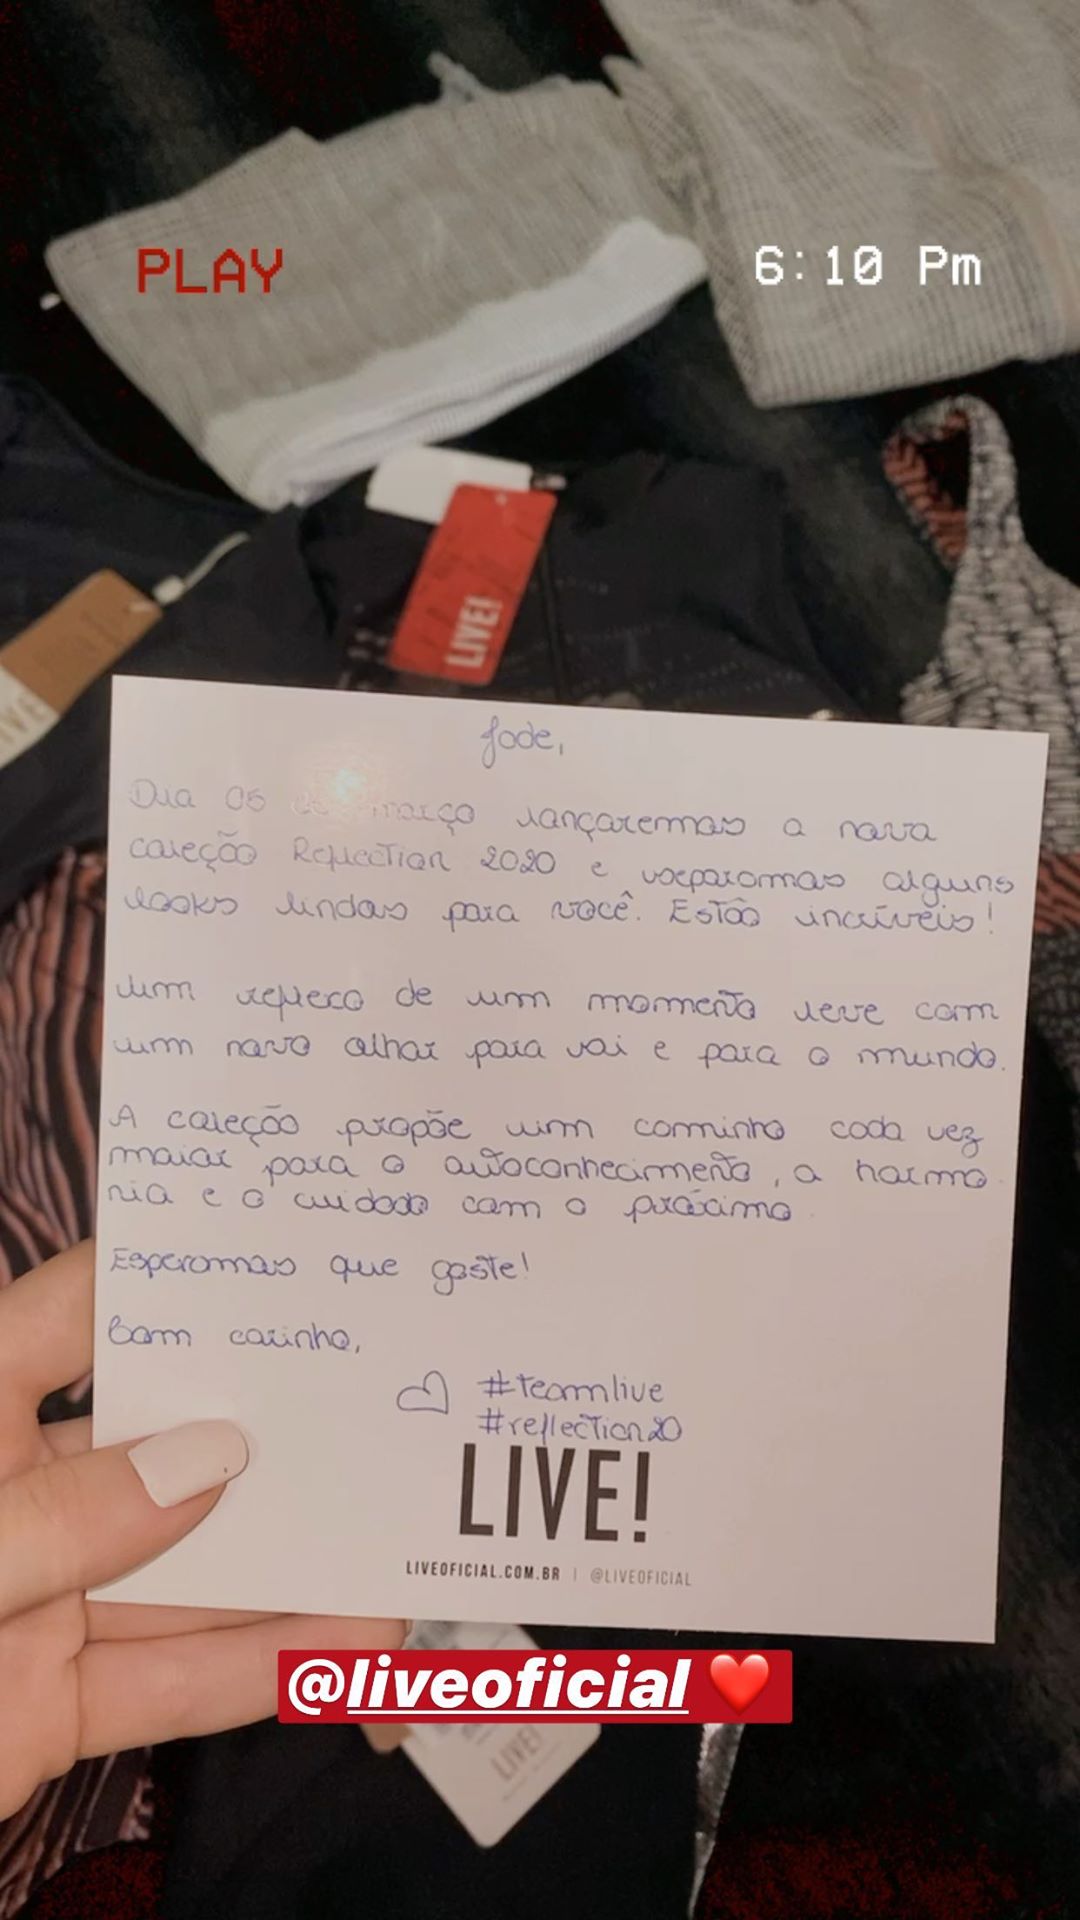 PLAY
6:10 Pm
LIVE!
Jade,
Dia 05 de março lançaremos a nova
coleção Reflection 2020 e separamos alguns
looks lindos para você. Estão incríveis!
Um reflexo de um momento leve com
um novo olhar para sai e para o mundo.
A coleção propõe um caminho cada vez
maior para o autoconhecimento, a harmo
nia e o cuidado com o próximo.
Esperamos que goste!
Com carinho,
#teamlive
#reflection20
LIVE!
LIVEOFICIAL.COM.BR | @LIVEOFICIAL
@liveoficial ❤️
LIVE!